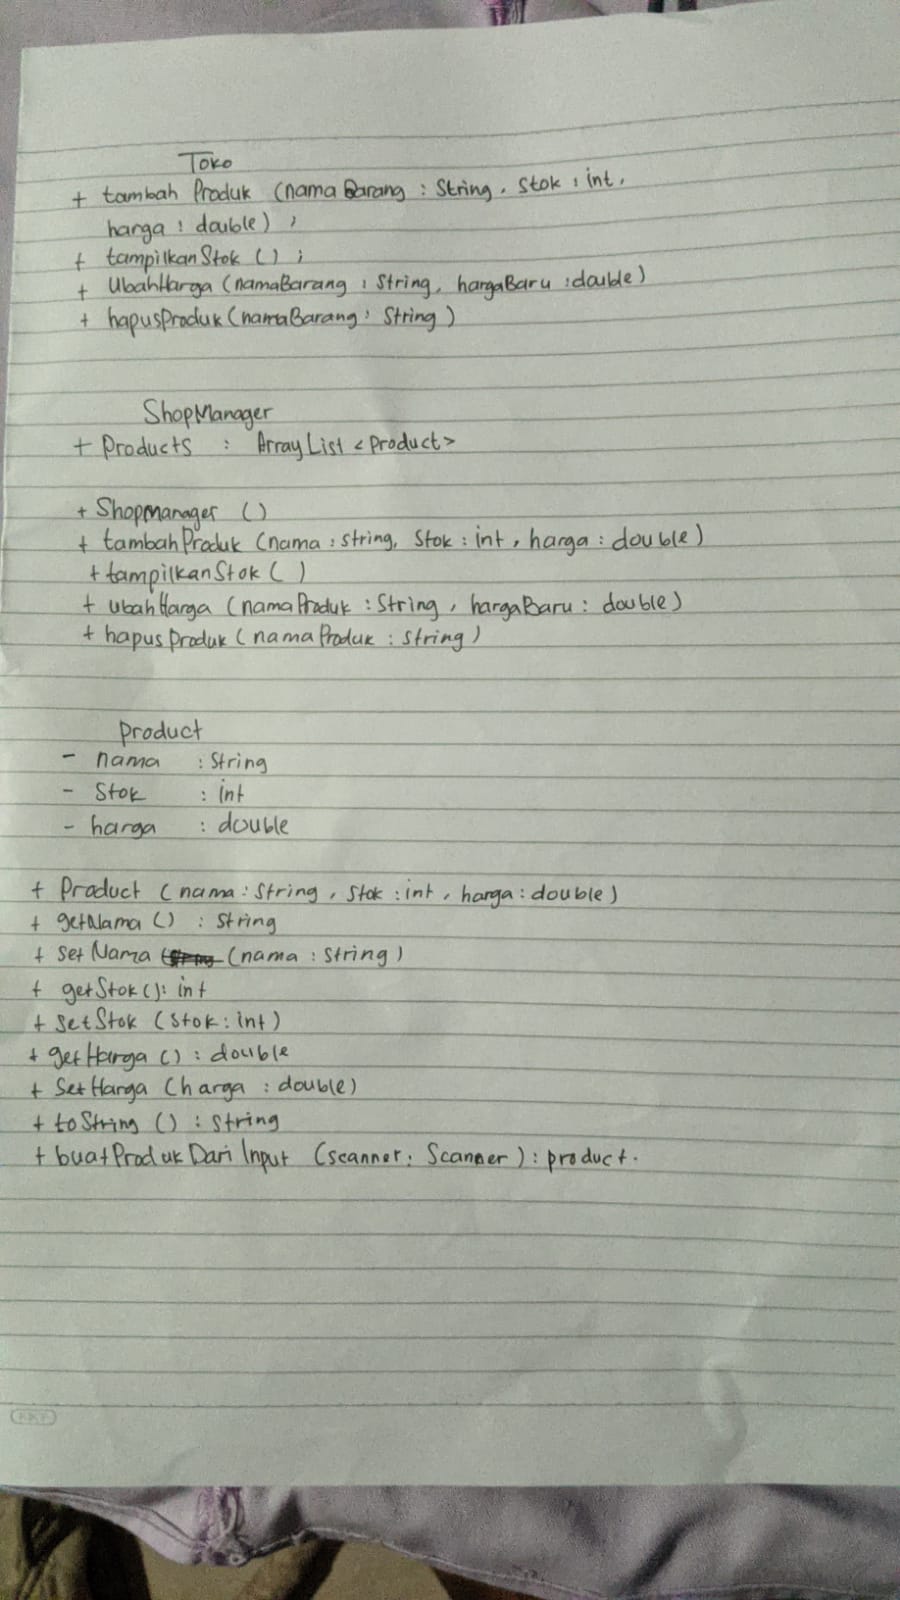 Toko
+ tambah Produk (nama Barang : String, stok : int,
harga : double) ;
+ tampilkanStok () ;
+ UbahHarga (namaBarang : String, hargaBaru : double)
+ hapusProduk (namaBarang : String)
ShopManager
+ Products : ArrayList <Product>
+ Shopmanager ()
+ tambahProduk (nama : String, Stok : int, harga : double)
+ tampilkanStok ( )
+ ubahHarga (namaProduk : String, hargaBaru : double)
+ hapus produk (namaProduk : String)
Product
- nama : String
- Stok : int
- harga : double
+ Product (nama : String, Stok : int, harga : double)
+ getNama () : String
+ set Nama (nama : String)
+ getStok () : int
+ setStok (Stok : int)
+ getHarga () : double
+ SetHarga (harga : double)
+ toString () : String
+ buatProdukDari Input (scanner : Scanner) : product.
KKY